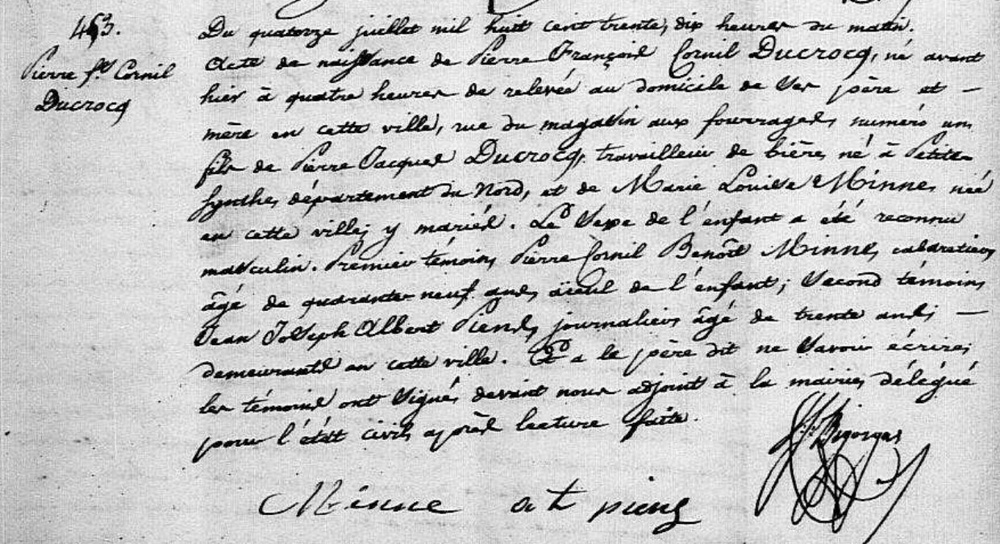 453.
Pierre fs. Cornil
Ducrocq
Du quatorze juillet mil huit cent trente, dix heures du matin.
Acte de naissance de Pierre François Cornil Ducrocq, né avant
hier à quatre heures de relevée au domicile de ses père et —
mère en cette ville, rue du magasin aux fourrages, numéro un,
fils de Pierre Jacques Ducrocq, travailleur de bière, né à Petite
Synthe, département du Nord, et de Marie Louise Minne, née
en cette ville, y mariés. Le sexe de l'enfant a été reconnu
masculin. Premier témoin, Pierre Cornil Benoît Minne, cabaretier,
âgé de quarante neuf ans, aïeul de l'enfant; Second témoin,
Jean Joseph Albert Piens, journalier, âgé de trente ans, —
demeurants en cette ville. Et a le père dit ne savoir écrire,
les témoins ont signé, devant nous adjoint à la mairie, délégué
pour l'état civil, après lecture faite.
Minne a t piens